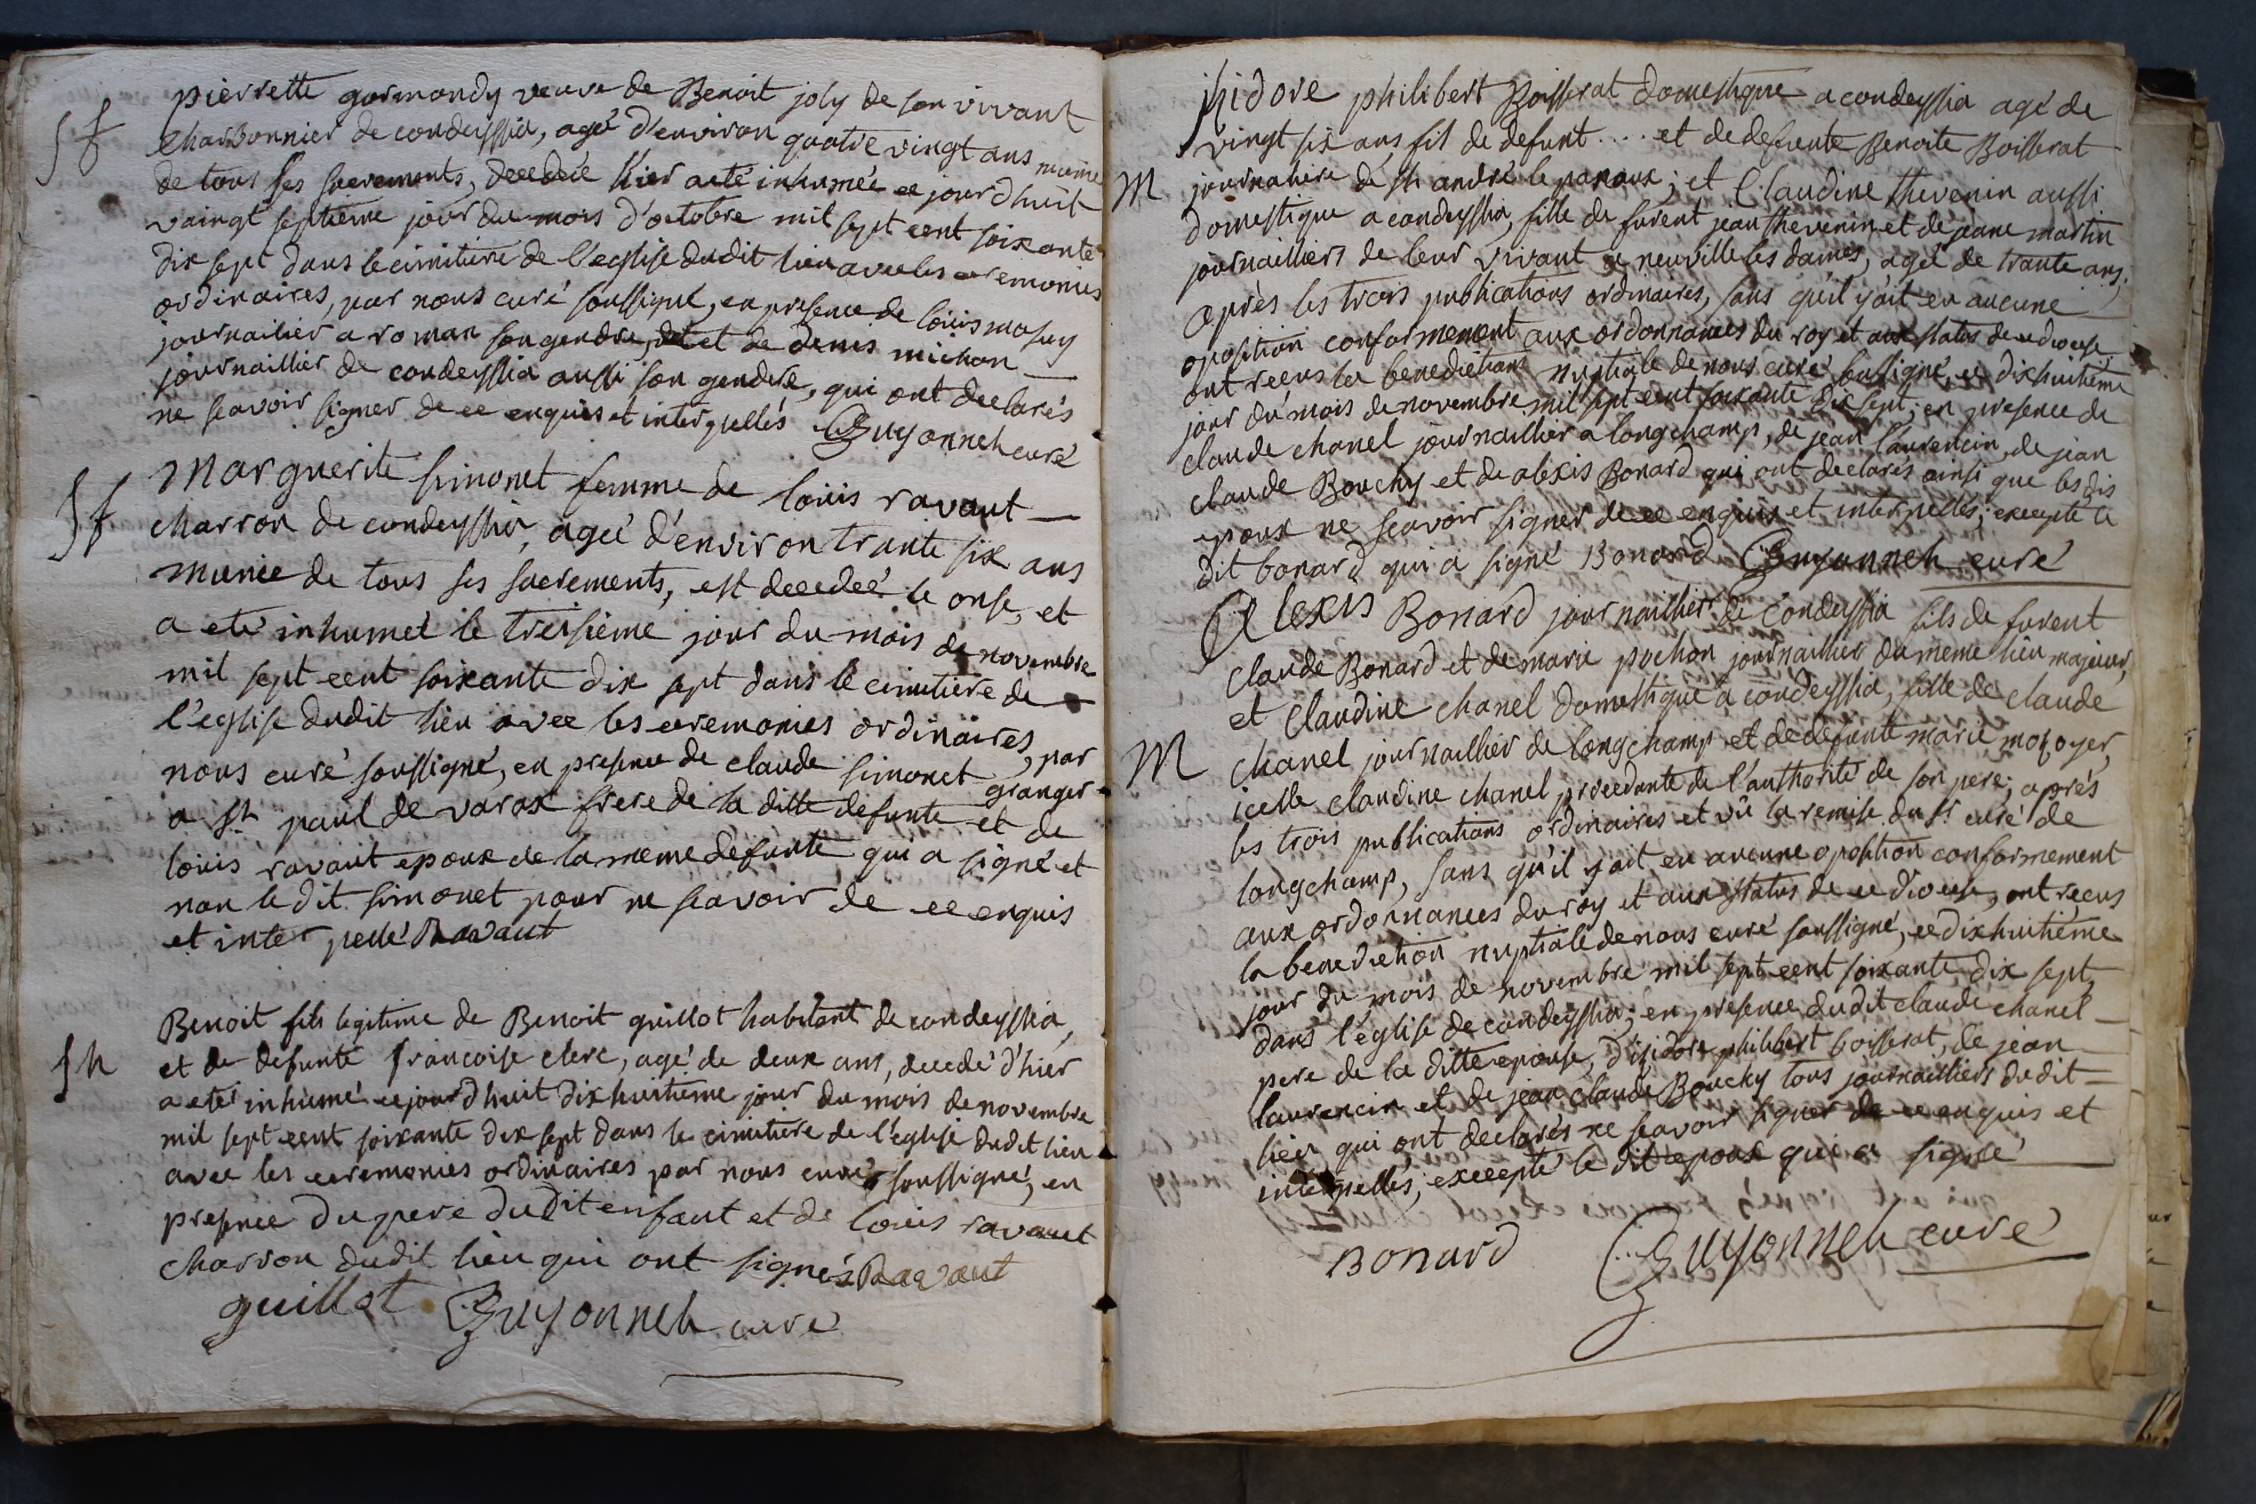 pierrette gormondy veuve de Benoit joly de son vivant
Sf
charbonnier de condeyssia, ageé d'environ quatre vingt ans munie
de tous ses sacrements, decedeé hier a eté inhumeé ce jourdhuit
vaingt septieme jour du mois d'octobre mil sept cent soixante
dix sept dans le cimitiere de l'eglise dudit lieu avec les ceremonies
ordinaires, par nous curé soussigné, en presence de loüis
journailier a roman son gendre, et de denis michon
journaillier de condeyssia aussi son gendre, qui ont declarés
ne scavoir signer de ce enquis et interpellés Guyonneh curé
Marguerite simonet femme de loüis ravaut
Sf
charron de condeyssia, ageé d'environ trante six ans
munie de tous ses sacrements, est decedeé le onse, et
a eté inhumeé le treisieme jour du mois de novembre
mil sept cent soixante dix sept dans le cimitiere de
l'eglise dudit lieu avec les ceremonies ordinaires, par
nous curé soussigné, en presence de claude simonet granger
a st paul de varax frere de la ditte defunte et de
loüis ravaut epoux de la meme defunte qui a signé et
non le dit simonet pour ne scavoir de ce enquis
et interpellé Ravaut
Benoit fils legitime de Benoit guillot habitant de condeyssia,
Sh
et de defunte francoise clerc, agé de deux ans, decedé d'hier
a eté inhumé cejourdhuit dixhuitieme jour du mois de novembre
mil sept cent soixante dix sept dans le cimitiere de l'eglise dudit lieu
avec les ceremonies ordinaires par nous curé soussigné, en
presence du pere dudit enfant et de loüis ravaut
charron dudit lieu qui ont signés Ravaut
guillot Guyonneh curé
philibert Boisserat domestique a condeyssia agé de
vingt six ans, fils de defunt ... et de defunte Benoite Boisserat
M
journaliere de st andré le panoux; et Claudine thevenin aussi
domestique a condeyssia, fille de furent jean thevenin et de jeane martin
journailliers de leur vivant a neuville les dames, ageé de trante ans;
après les trois publications ordinaires, sans qu'il y ait eu aucune
oposition conformement aux ordonnances du roy et aux statuts de ce diocese
ont receus la benediction nuptiale de nous curé soussigné, ce dixhuitieme
jour du mois de novembre mil sept cent soixante dix sept; en presence de
claude chanel journaillier a longchamp, de jean laurencin, de jean
claude Bouchy et de alexis Bonard qui ont declarés ainsi que lesdis
epoux ne scavoir signer de ce enquis et interpellés; excepté le
dit bonard qui a signé Bonard Guyonneh curé
Alexis Bonard journaillier de condeyssia fils de furent
claude Bonard et de marie pochon journaillier du meme lieu majeur,
et Claudine chanel domestique a condeyssia, fille de claude
M
chanel journaillier de longchamp et de defunte marie moyoyer,
icelle claudine chanel procedante de l'authorité de son pere; après
les trois publications ordinaires et vû la remise du sr curé de
longchamp, sans qu'il y ait eu aucune oposition conformement
aux ordonnances du roy et aux statuts de ce diocese, ont receus
la benediction nuptiale de nous curé soussigné, ce dixhuitieme
jour du mois de novembre mil sept cent soixante dix sept,
dans l'eglise de condeyssia; en presence dudit claude chanel
pere de la ditte epouse, d'isidore philibert boisserat, de jean
laurencin et de jean claude Bouchy tous journailliers dudit
lieu qui ont declarés ne scavoir signer de ce enquis et
interpellés; excepté le dit epoux qui a signé
Bonard Guyonneh curé